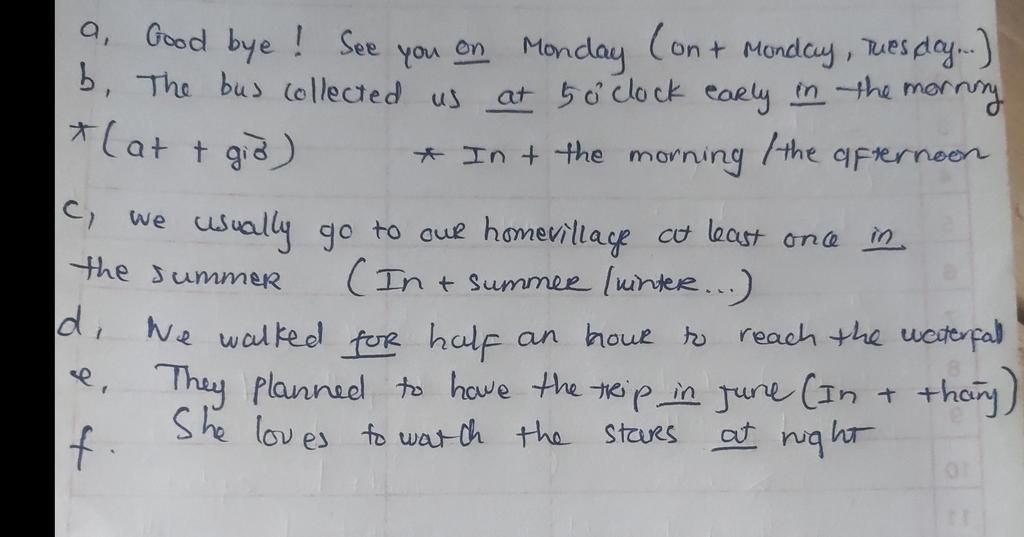 a, Good bye ! See you on Monday (on + Monday, Tuesday...)
b, The bus collected us at 5 o'clock early in the morning
*(at + giờ) * In + the morning / the afternoon
c, we usually go to our homevillage at least once in
the summer (In + summer / winter...)
d, We walked for half an hour to reach the waterfall
e, They planned to have the trip in June (In + tháng)
f. She loves to watch the stars at night
6
8
9
10
11